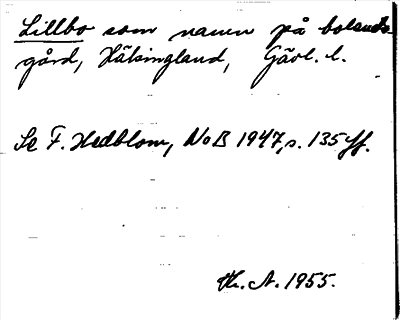 Lillbo som namn på bolands-
gård, Hälsingland, Gävl. l.
Se F. Hedblom, NoB 1947, s. 135 ff.
Th. A. 1955.